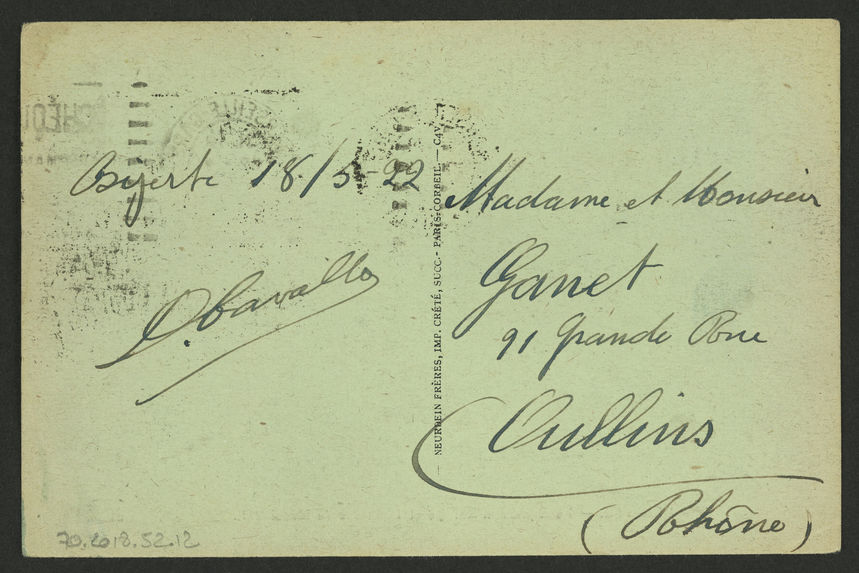 Bizerte 18/5-22
Cavallo
Madame et Monsieur
Ganet
91 Grande Rue
Oullins
(Rhône)
NEURDEIN FRÈRES, IMP. CRÉTÉ, SUCC. - PARIS-CORBEIL. — C4V
70.2018.52.12